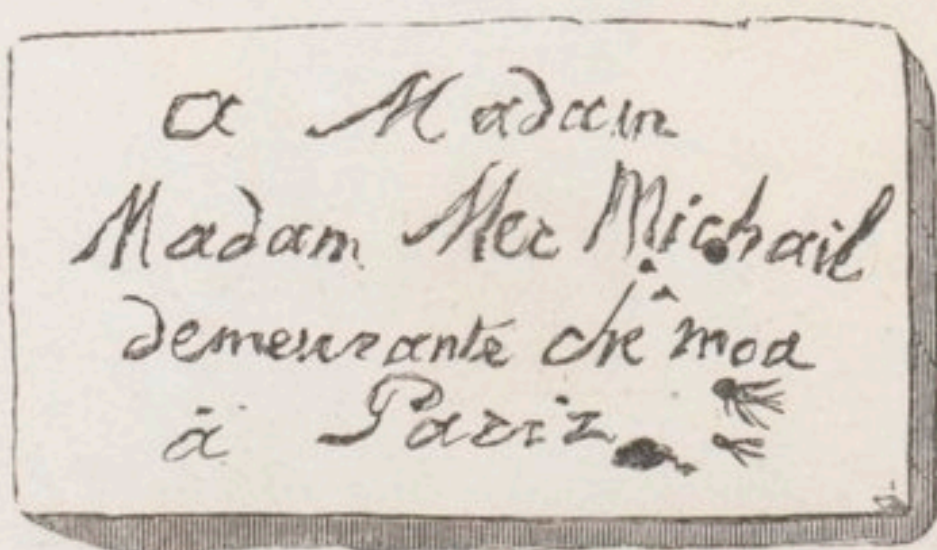 a Madam
Madam Mer Michail
demeurante ché moa
à Pariz